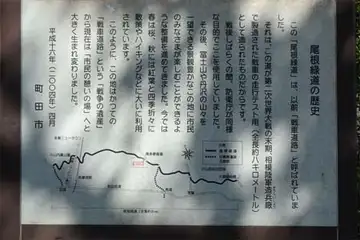 尾根緑道の歴史
この「尾根緑道」は、以前「戦車道路」と呼ばれていま
した。
それは、この道が第二次世界大戦の末期、相模陸軍造兵廠
で製造された戦車の走行テスト用（全長約八キロメートル）
として造られたものだからです。
戦後しばらくの間、防衛庁が同様
な目的でここを使用していました。
その後、富士山や丹沢の山々を
一望できる景観豊かなこの地に市民
のみなさまが楽しむことができるよ
うな整備を進めてきました。今では
春は桜、秋には紅葉と四季折々に
散策やハイキングなどに大いに利用
されています。
このように、この道はかつての
「戦車道路」という「戦争の遺産」
から現在は「市民の憩いの場」へと
大きく生まれ変わりました。
平成十六年（二〇〇四年）四月
町田市